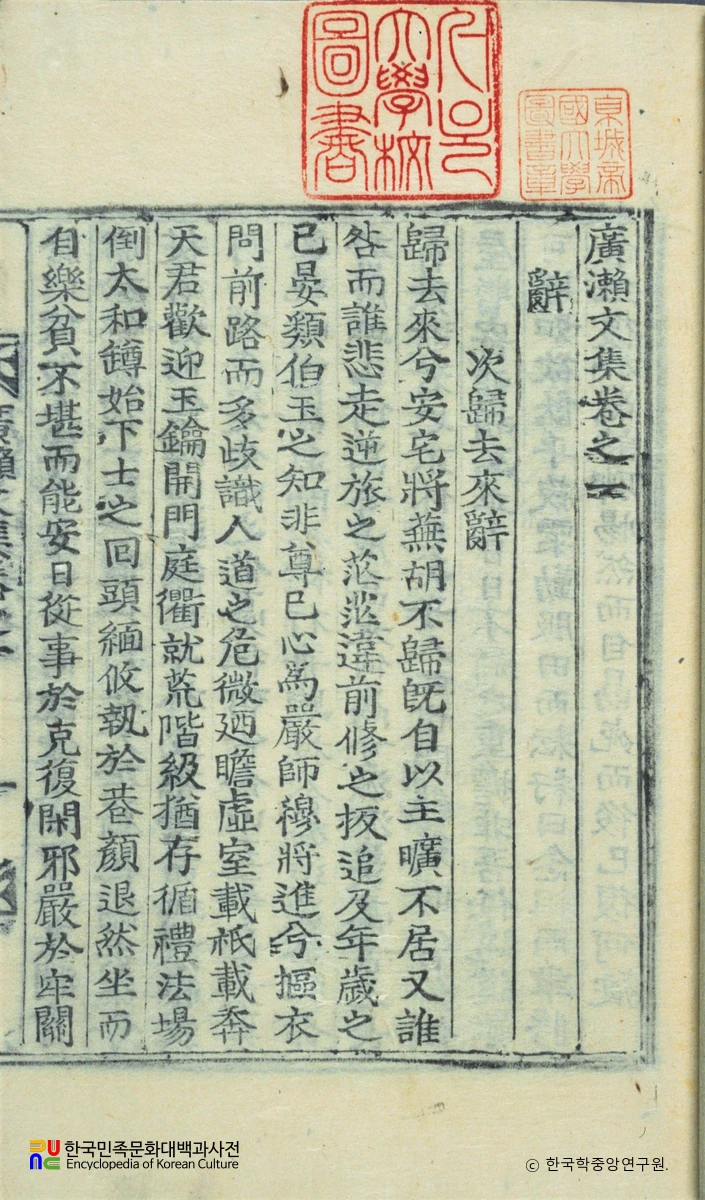 廣瀨文集卷之一
辭
次歸去來辭
歸去來兮安宅將蕪胡不歸旣自以主曠不居又誰
咎而誰悲走逆旅之茫茫違前修之扳追及年歲之
已晏類伯玉之知非尊已心爲嚴師穆將進兮摳衣
問前路而多歧識人道之危微廼瞻虛室載祗載奔
天君歡迎玉鑰開門庭衢就荒階級猶存循禮法場
倒太和罇始下士之回頭緬攸執於巷顔退然坐而
自樂貧不堪而能安日從事於克復閑邪嚴於牢關
大學校
圖書
京城帝
國大學
圖書章
한국민족문화대백과사전
Encyclopedia of Korean Culture
© 한국학중앙연구원.